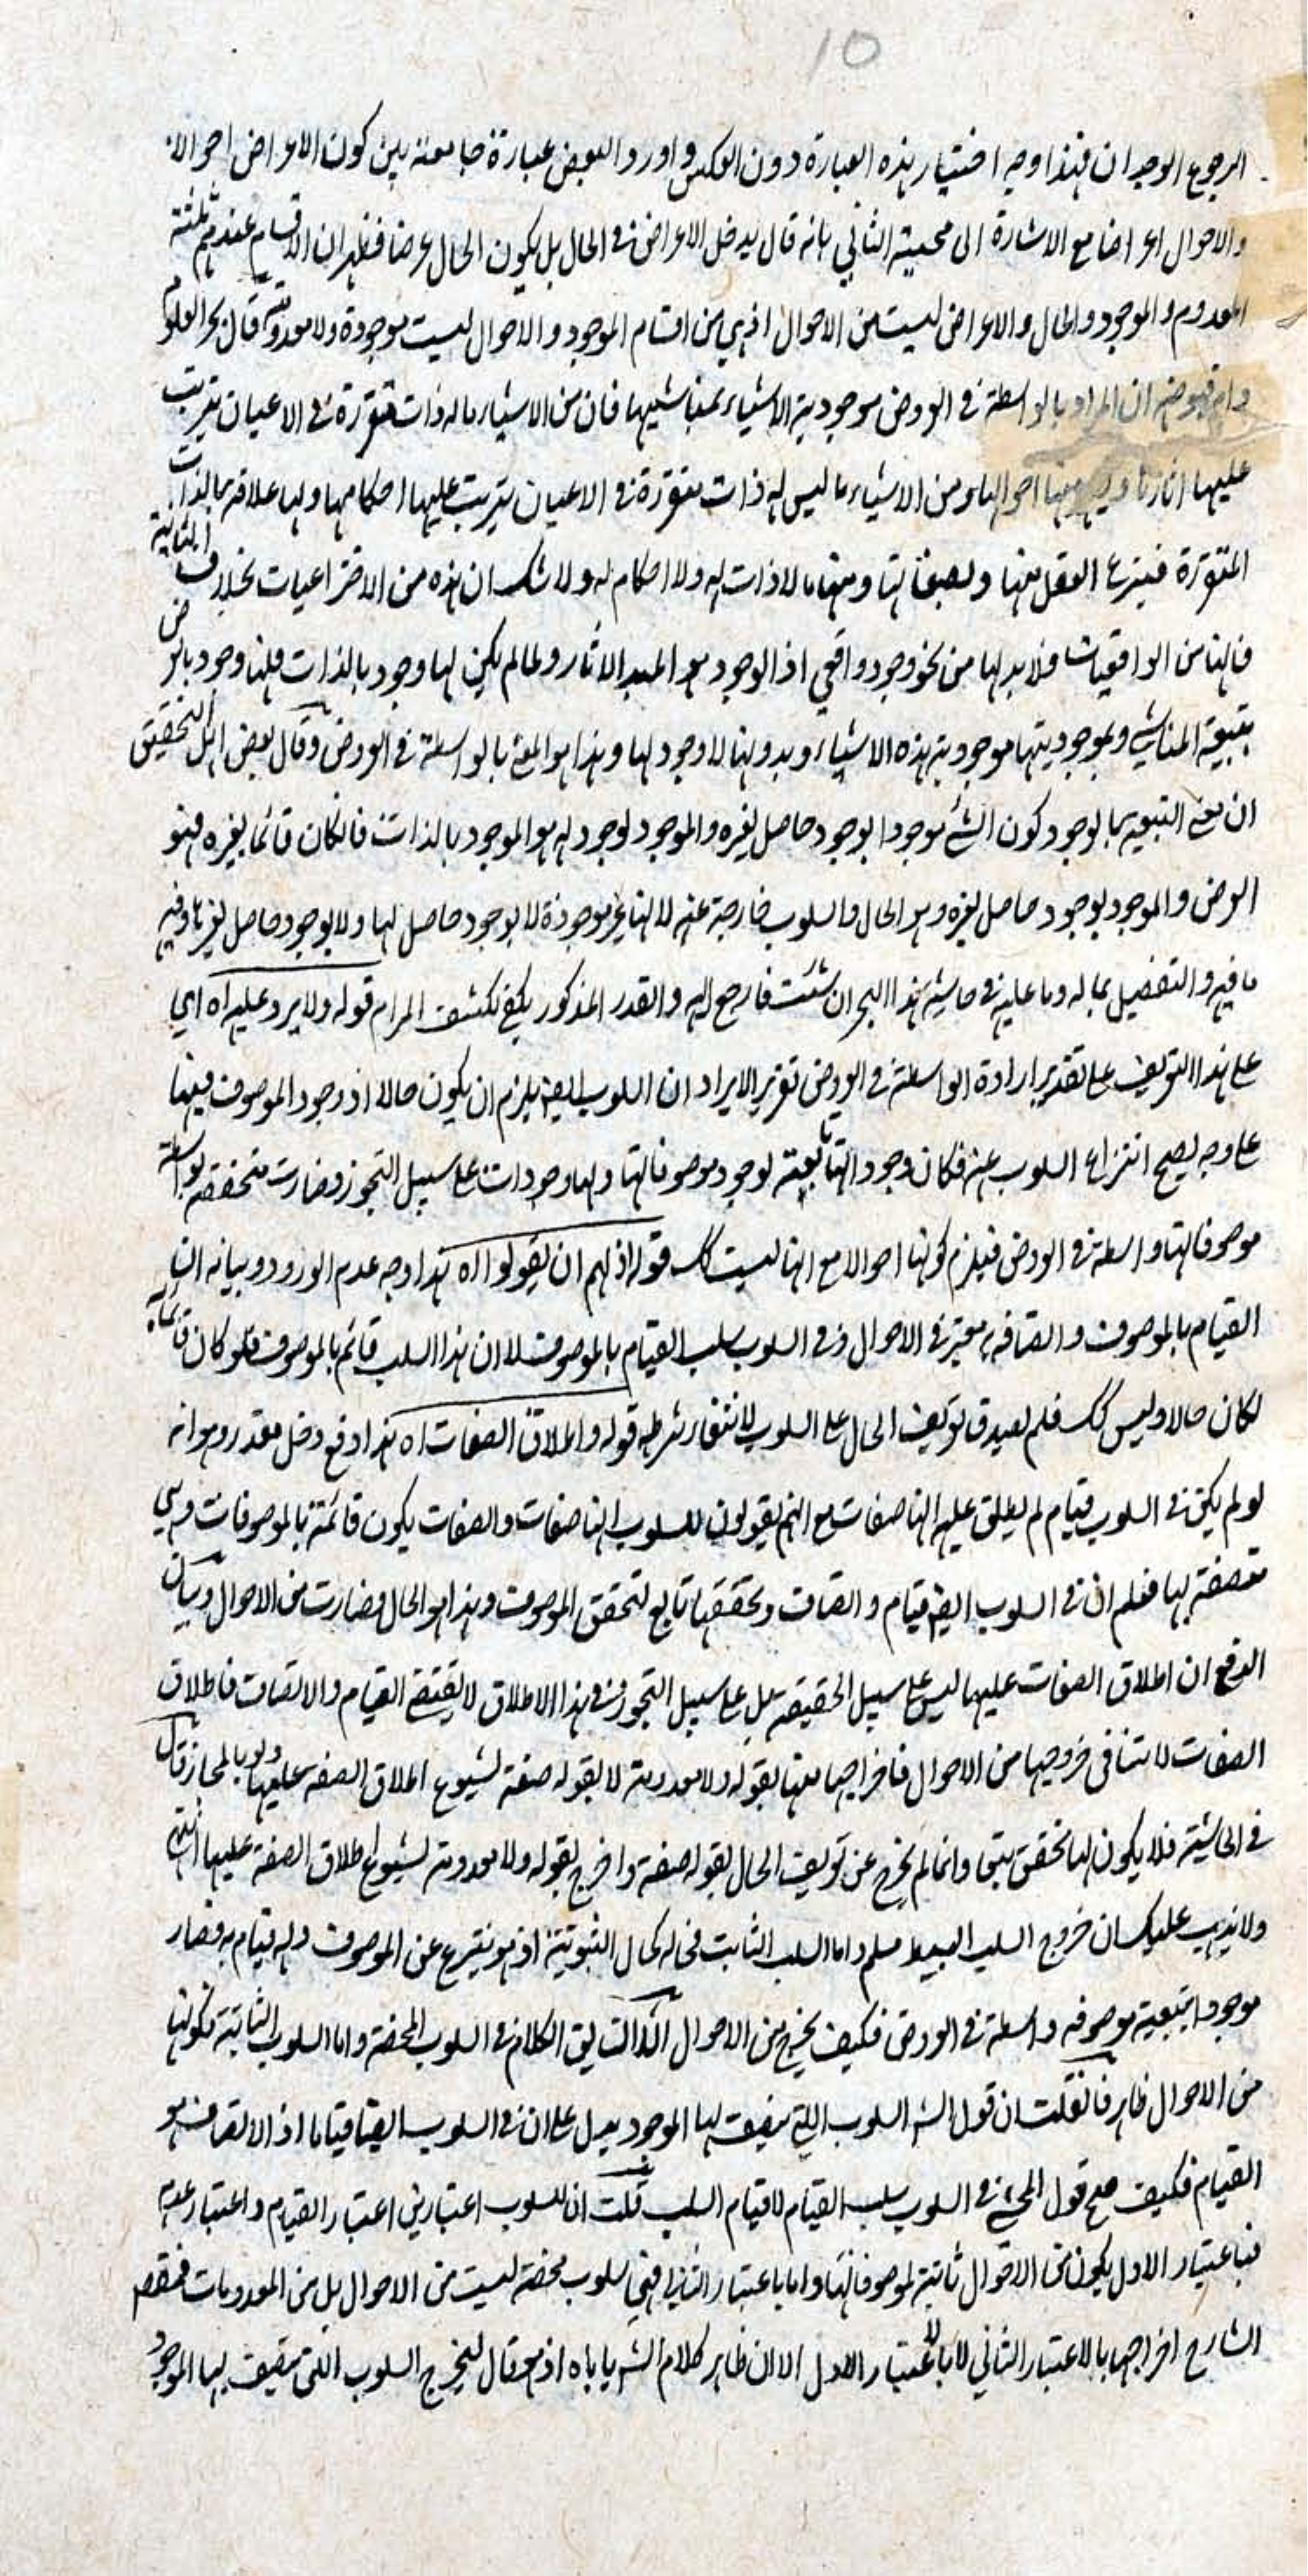 10
الرجوع الوجدان فهذا وجه اختيار هذه العبارة دون العكس واورد البعض عبارة جامعة بين كون الاعراض احوالا
والاحوال اعراضا مع الاشارة الى محبية الثاني بانه قال يدخل الاعراض في الحال بل يكون الحال عرضا فظهر ان الاقسام عندهم ثلثة
المعدوم والموجود والحال والاعراض ليست من الاحوال اذ هي من اقسام الموجود والاحوال ليست موجودة ولا معدومة قال بحر العلوم
ان المراد بالواسطة في العروض موجودية الاشياء بمناشيها فان من الاشياء ما له ذات متقررة في الاعيان يترتب
عليها اثارها احوالها ومن الاشياء ما ليس له ذات متقررة في الاعيان يترتب عليها احكامها ولها علاقة بالذات
المتقررة فينتزع العقل عنها ويصفها بها ومنها ما لا ذات له ولا احكام له ولا شك ان هذه من الاختراعيات بخلاف الثانية
فانها من الواقعيات فلا بد لها من نحو وجود واقعي اذ الوجود هو المبدء الاثار ولما لم يكن لها وجود بالذات فلها وجود بالعرض
بتبعية المناشي وبموجوديتها موجودية هذه الاشياء وبدونها لا وجود لها وهذا هو المعنى بالواسطة في العروض وقال بعض اهل التحقيق
ان معنى التبعية بالوجود كون الشئ موجودا بوجود حاصل لغيره والموجود لوجود له هو الموجود بالذات فان كان قائما بغيره فهو
العرض والموجود بوجود حاصل لغيره وهو الحال والسلوب خارجة عنه لانها غير موجودة لا بوجود حاصل لها ولا بوجود حاصل لغيرها وفيه
ما فيه والتفصيل بما له وما عليه في حاشية هذا البحر ان شئت فارجع اليه والقدر المذكور يكفي لكشف المرام قوله ولا يرد عليه اه اي
على هذا التعريف على تقدير ارادة الواسطة في العروض تقرير الايراد ان السلوب ايضا يلزم ان يكون حالا اذ وجود الموصوف فيها
على وجه يصح انتزاع السلوب عنه فكان وجوداتها تابعة لوجود موصوفاتها ولها وجودات على سبيل التجوز وصارت متحققة بواسطة
موصوفاتها واسطة في العروض فيلزم كونها احوالا مع انها ليست كك قوله اذ لهم ان يقولوا اه هذا وجه عدم الورود وبيانه ان
القيام بالموصوف واتصافه معتبر في الاحوال وفي السلوب سلب القيام بالموصوف لا ان هذا السلب قائم بالموصوف فلو كان قائما به
لكان حالا وليس كك فلم يصدق تعريف الحال على السلوب لانتفاء شرطه قوله واطلاق الصفات اه هذا دفع دخل مقدر وهو انه
لو لم يكن في السلوب قيام لم يطلق عليه انها صفات مع انهم يقولون للسلوب انها صفات والصفات يكون قائمة بالموصوفات وهي
متصفة بها فعلم ان في السلوب ايضا قيام واتصاف وتحققها تابع لتحقق الموصوف وهذا هو الحال فصارت من الاحوال وبيان
الدفع ان اطلاق الصفات عليها ليس على سبيل الحقيقة بل على سبيل التجوز وفي هذا الاطلاق لا يقتضي القيام والاتصاف فاطلاق
الصفات لا تنافي خروجها من الاحوال فاخراجها عنها بقوله ولا معدومة لا بقوله صفة لشيوع اطلاق الصفة عليها ولو بالمجاز قال
في الحاشية فلا يكون لها تحقق تبعي وانما لم يخرج عن تعريف الحال بقوله صفة واخرج بقوله ولا معدومة لشيوع اطلاق الصفة عليها انتهى
ولا يذهب عليك ان خروج السلب البسيط مسلم واما السلب الثابت فحاله كحال الثبوتية اذ هو ينتزع عن الموصوف وله قيام به فصار
موجودا بتبعية موصوفه واسطة في العروض فكيف يخرج من الاحوال الكلام في السلوب المحضة واما السلوب الثابتة فكونها
من الاحوال ظاهر فان قلت ان قول الشه السلوب التي يتصف بها الموجود يدل على ان في السلوب ايضا قياما اذ الاتصاف هو
القيام فكيف صح قول المحشي في السلوب سلب القيام لا قيام السلب قلت ان للسلوب اعتبارين اعتبار القيام واعتبار عدمه
فباعتبار الاول يكون من الاحوال ثابتة لموصوفاتها واما باعتبار الثاني فهي سلوب محضة ليست من الاحوال بل من المعدومات فمقصد
الشارح اخراجها بالاعتبار الثاني لا باعتبار الاول الا ان ظاهر كلام الشه ياباه اذ هو قال ليخرج السلوب التي يتصف بها الموجود